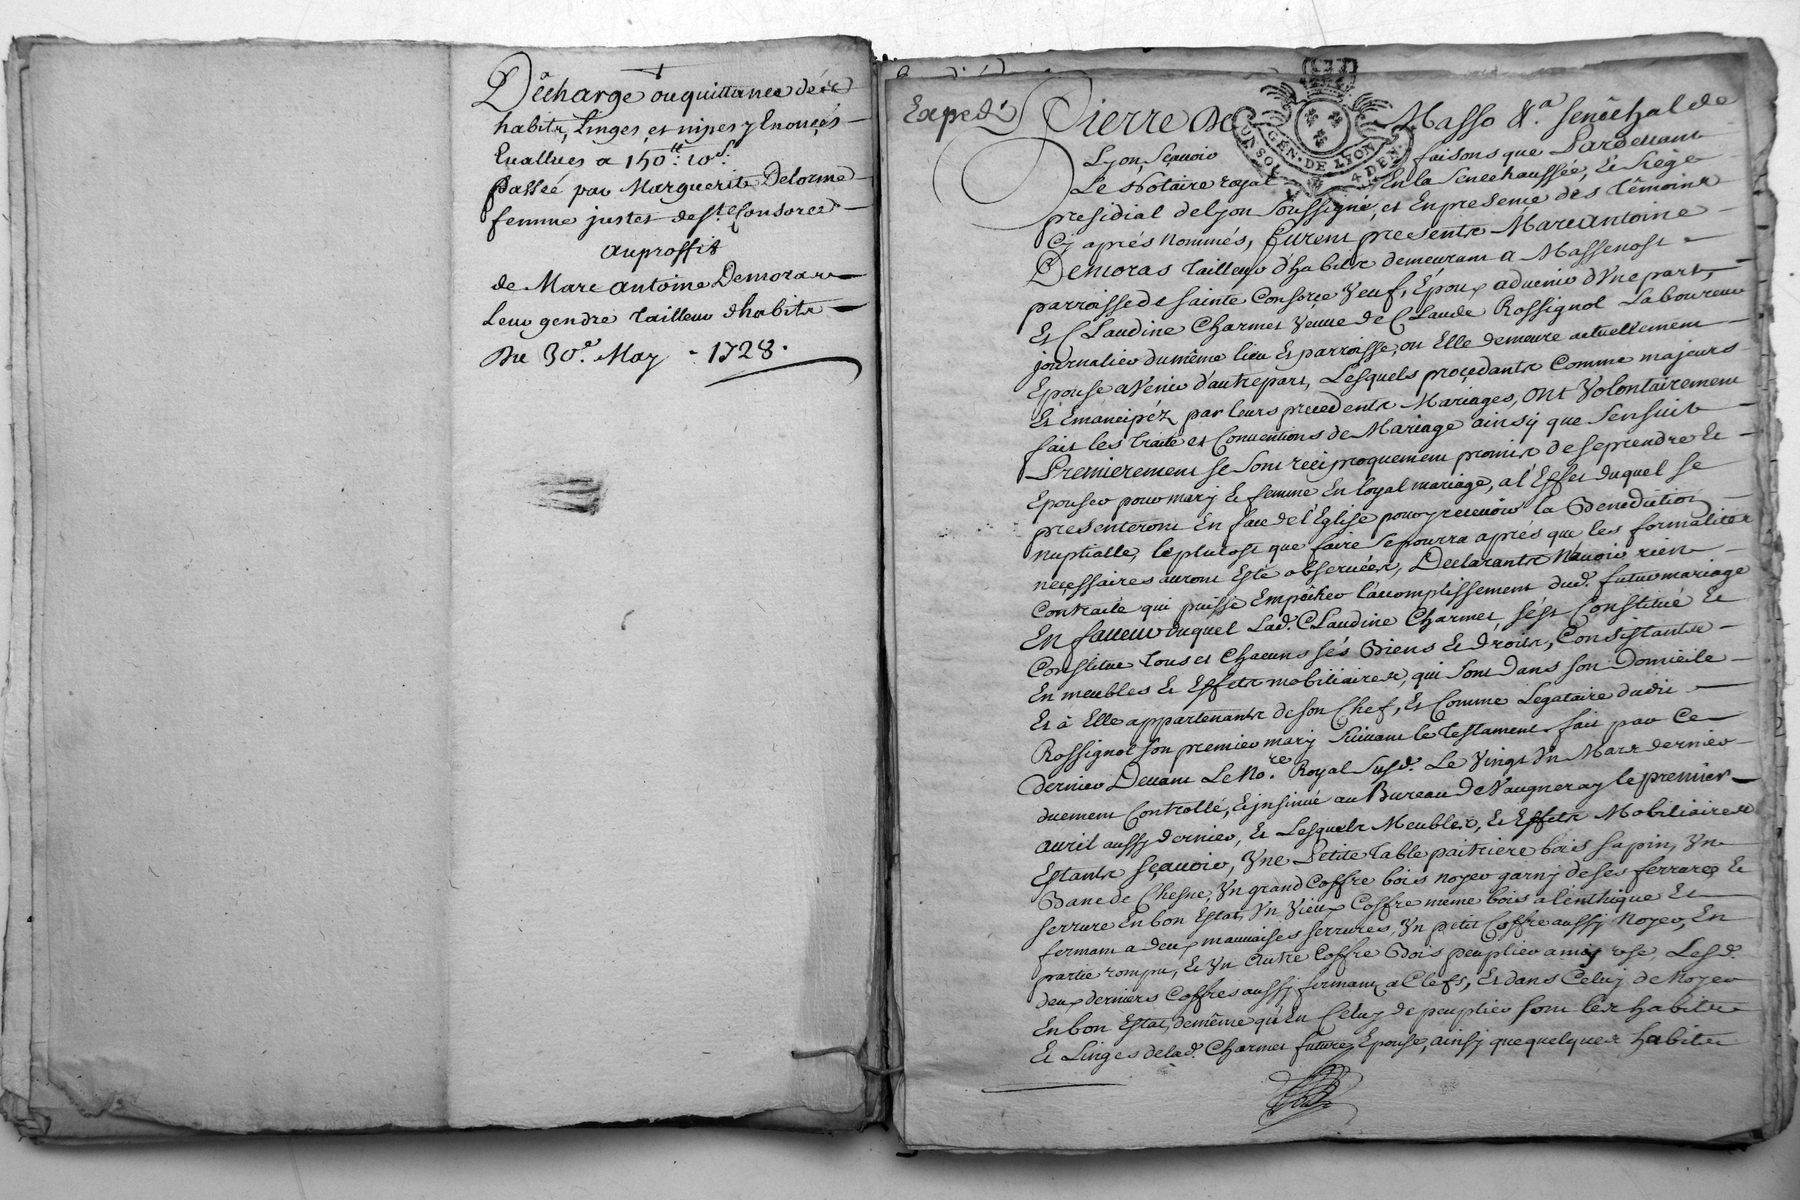 Décharge ou quittance des
habits, Linges, et nipes y Enoncés
Evallués a 150.ᵗᵗ 10ˢ.
passée par Marguerite Delorme
femme justet de Sᵗᵉ Consorce
au proffit
de Marc antoine Demoras
Leur gendre Tailleur d'habits
Du 30.ᵉ May 1728.
Expedié
Pierre De Masso &.ᵃ Senêchal de
Lyon, Sçavoir faisons que Pardevant
Le Notaire royal En la Senechaussée, Et Siege
presidial de Lyon Soussigné, et En presence des Têmoins
Cy aprés Nommés, furent presents Marc Antoine
Demoras Tailleur d'habits demeurant a Massenost
parroisse de Sainte Consorce Veuf, Epoux advenir d'Vne part,
Et Claudine Charmet Veuve de Claude Rossignol Laboureur
journalier du même lieu Et parroisse, ou Elle demeure actuellement
Epouse a Venir d'autre part, Lesquels proçedants Comme majeurs
Et Emancipéz par leurs precedents Mariages, Ont Volontairement
fait les Traité et Conventions de Mariage ainsy que S'ensuit
Premierement Se Sont reciproquement promis de Se prendre Et
Epouser pour mary Et femme En loyal mariage, a l'Effet duquel Se
presenteront En face de l'Eglise pour y recevoir la Benediction
nuptialle, le plutost que faire Se pourra aprés que les formalités
neçessaires auront Esté observées, Declarants N'avoir rien
Contracté qui puisse Empêcher l'accomplissement dud. futur mariage
En faveur duquel Lad. Claudine Charmet S'est Constitué Et
Constitue Tous et Chacuns Ses Biens Et droits, Consistants
En meubles Et Effets mobiliaires, qui Sont dans Son Domicile
Et à Elle appartenants de Son Chef, Et Comme Legataire dudit
Rossignol Son premier mary Suivant le Testament fait par Ce
dernier Devant Le No.ʳᵉ Royal Susd. Le Vingt Vn Mars dernier
duement Controllé, Et jnsinué au Bureau de Vaugneray le premier
avril aussy dernier, Et Lesquels Meubles, Et Effets Mobiliaires
Estants Sçavoir, Vne Petite Table paitriere bois Sapin, Vn
Banc de Chesne, Vn grand Coffre bois noyer garny de Ses ferrares Et
Serrure En bon Estat, Vn Vieux Coffre meme bois a l'enthique Et
fermant a deux mauvaises Serrures, Vn petit Coffre aussy Noyer, En
partie rompu, Et Vn autre Coffre Bois peuplier a my vse, Lesd.
deux derniers Coffres aussy fermant a Clefs, Et dans Celuy de Noyer
En bon Estat, de même qu'En Celuy de peuplier Sont les habits
Et Linges de lad. Charmet future Epouse, ainsy que quelques habits